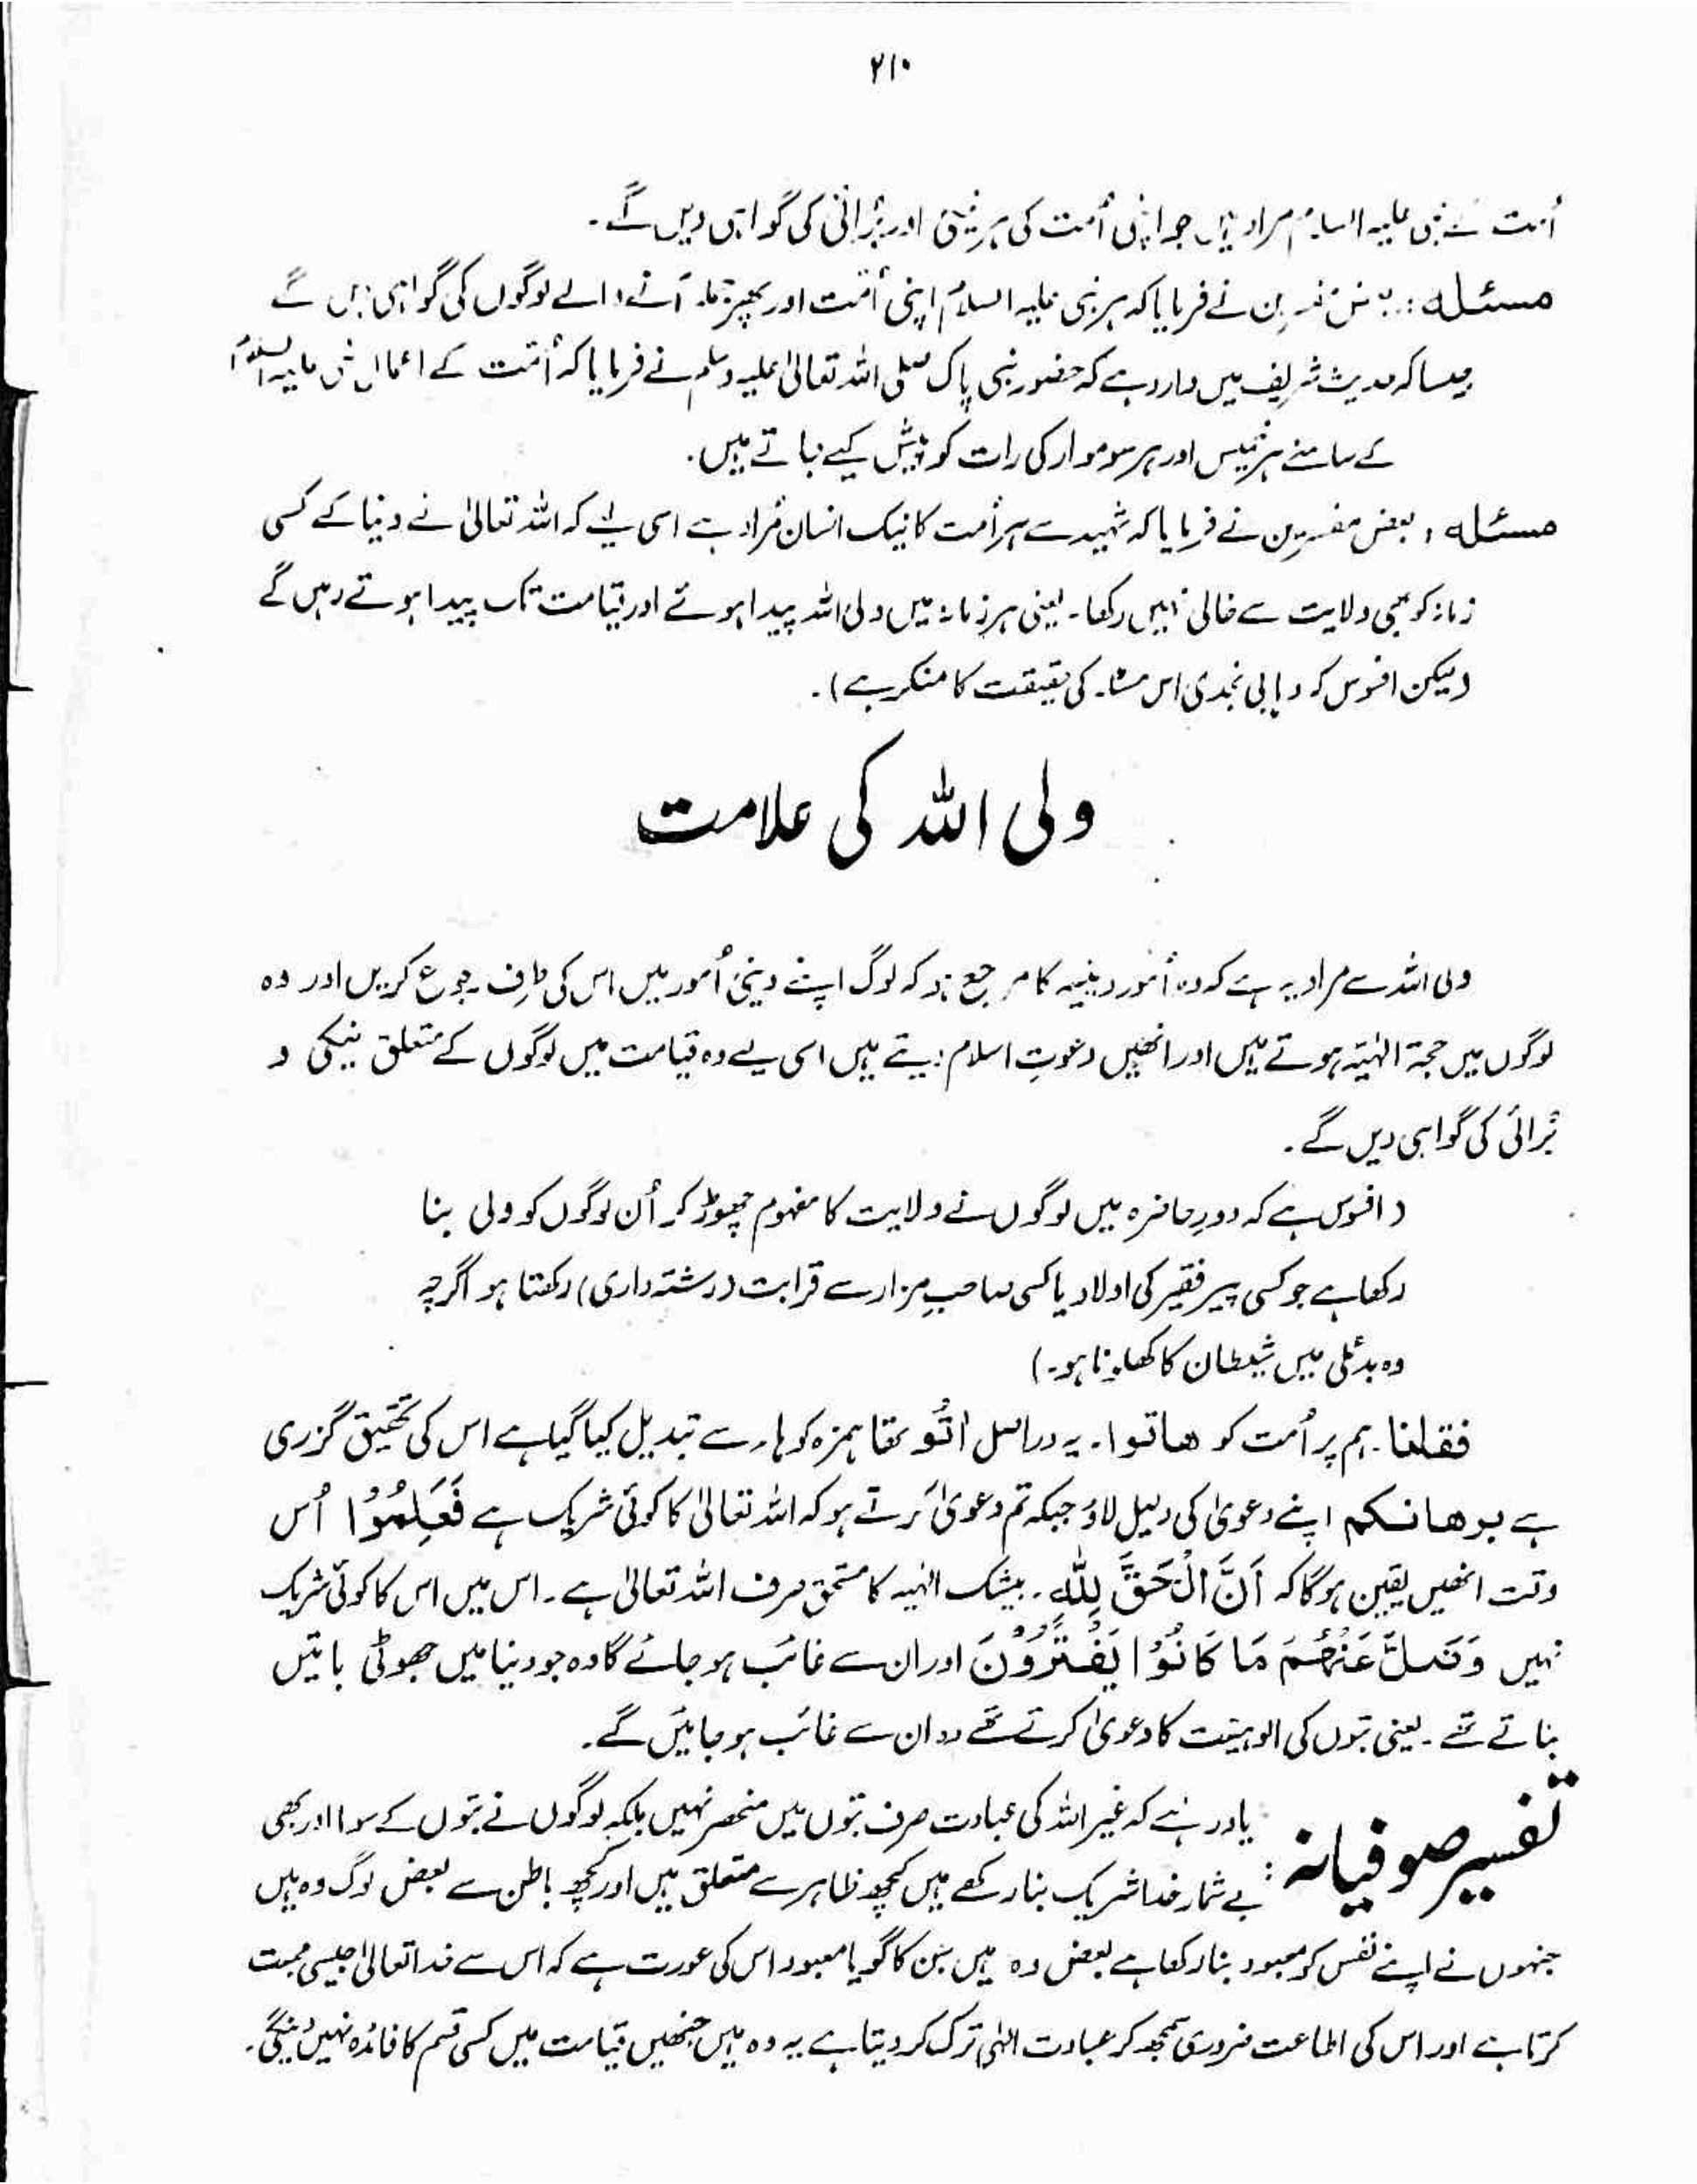 ۲۱۰
اُمت کے نبی علیہ السلام مراد ہیں جو اپنی اُمت کی ہر نیکی اور بُرائی کی گواہی دیں گے۔
مسئلہ : بعض مفسرین نے فرمایا کہ ہر نبی علیہ السلام اپنی اُمت اور پھر آنے والے لوگوں کی گواہی دیں گے
جیسا کہ حدیث شریف میں وارد ہے کہ حضور نبی پاک صلی اللہ تعالیٰ علیہ وسلم نے فرمایا کہ اُمت کے اعمال نبی علیہ السلام
کے سامنے ہر خمیس اور ہر سوموار کی رات کو پیش کیے جاتے ہیں۔
مسئلہ : بعض مفسرین نے فرمایا کہ شہید سے ہر اُمت کا نیک انسان مُراد ہے اسی لیے کہ اللہ تعالیٰ نے دنیا کے کسی
زمانہ کو بھی ولایت سے خالی نہیں رکھا۔ یعنی ہر زمانہ میں ولی اللہ پیدا ہوئے اور قیامت تک پیدا ہوتے رہیں گے
(لیکن افسوس کہ وہابی نجدی اس مسئلہ کی حقیقت کا منکر ہے)۔
ولی اللہ کی علامت
ولی اللہ سے مراد یہ ہے کہ وہ اُمور دینیہ کا مرجع ہو کہ لوگ اپنے دینی اُمور میں اس کی طرف رجوع کریں اور وہ
لوگوں میں حجۃ الٰہیّہ ہوتے ہیں اور انھیں دعوتِ اسلام دیتے ہیں اسی لیے وہ قیامت میں لوگوں کے متعلق نیکی و
بُرائی کی گواہی دیں گے۔
( افسوس ہے کہ دورِ حاضرہ میں لوگوں نے ولایت کا مفہوم چھوڑ کر اُن لوگوں کو ولی بنا
رکھا ہے جو کسی پیر فقیر کی اولاد یا کسی صاحبِ مزار سے قرابت (رشتہ داری) رکھتا ہو اگرچہ
وہ بدعملی میں شیطان کا کھلونا ہو۔)
فقلنا۔ ہم ہر اُمت کو ھاتوا۔ یہ دراصل اٰتُو تھا ہمزہ کو ہاء سے تبدیل کیا گیا ہے اس کی تحقیق گزری
ہے برھانکم اپنے دعویٰ کی دلیل لاؤ جبکہ تم دعویٰ کرتے ہو کہ اللہ تعالیٰ کا کوئی شریک ہے فَعَلِمُوْا اُس
وقت انھیں یقین ہوگا کہ اَنَّ الْحَقَّ لِلّٰهِ۔ بیشک الٰہیہ کا مستحق صرف اللہ تعالیٰ ہے۔ اس میں اس کا کوئی شریک
نہیں وَضَلَّ عَنْهُمْ مَا كَانُوْا يَفْتَرُوْنَ اور ان سے غائب ہو جائے گا وہ جو دنیا میں جھوٹی باتیں
بناتے تھے۔ یعنی بتوں کی الوہیّت کا دعویٰ کرتے تھے وہ ان سے غائب ہو جائیں گے۔
تفسیر صوفیانہ : یاد رہے کہ غیر اللہ کی عبادت صرف بتوں میں منحصر نہیں بلکہ لوگوں نے بتوں کے سوا اور بھی
بے شمار خدا شریک بنا رکھے ہیں کچھ ظاہر سے متعلق ہیں اور کچھ باطن سے بعض لوگ وہ ہیں
جنہوں نے اپنے نفس کو معبود بنا رکھا ہے بعض وہ ہیں جن کا گویا معبود اس کی عورت ہے کہ اس سے خدا تعالیٰ جیسی محبت
کرتا ہے اور اس کی اطاعت ضروری سمجھ کر عبادت الٰہی ترک کر دیتا ہے یہ وہ ہیں جنھیں قیامت میں کسی قسم کا فائدہ نہیں دینگی۔